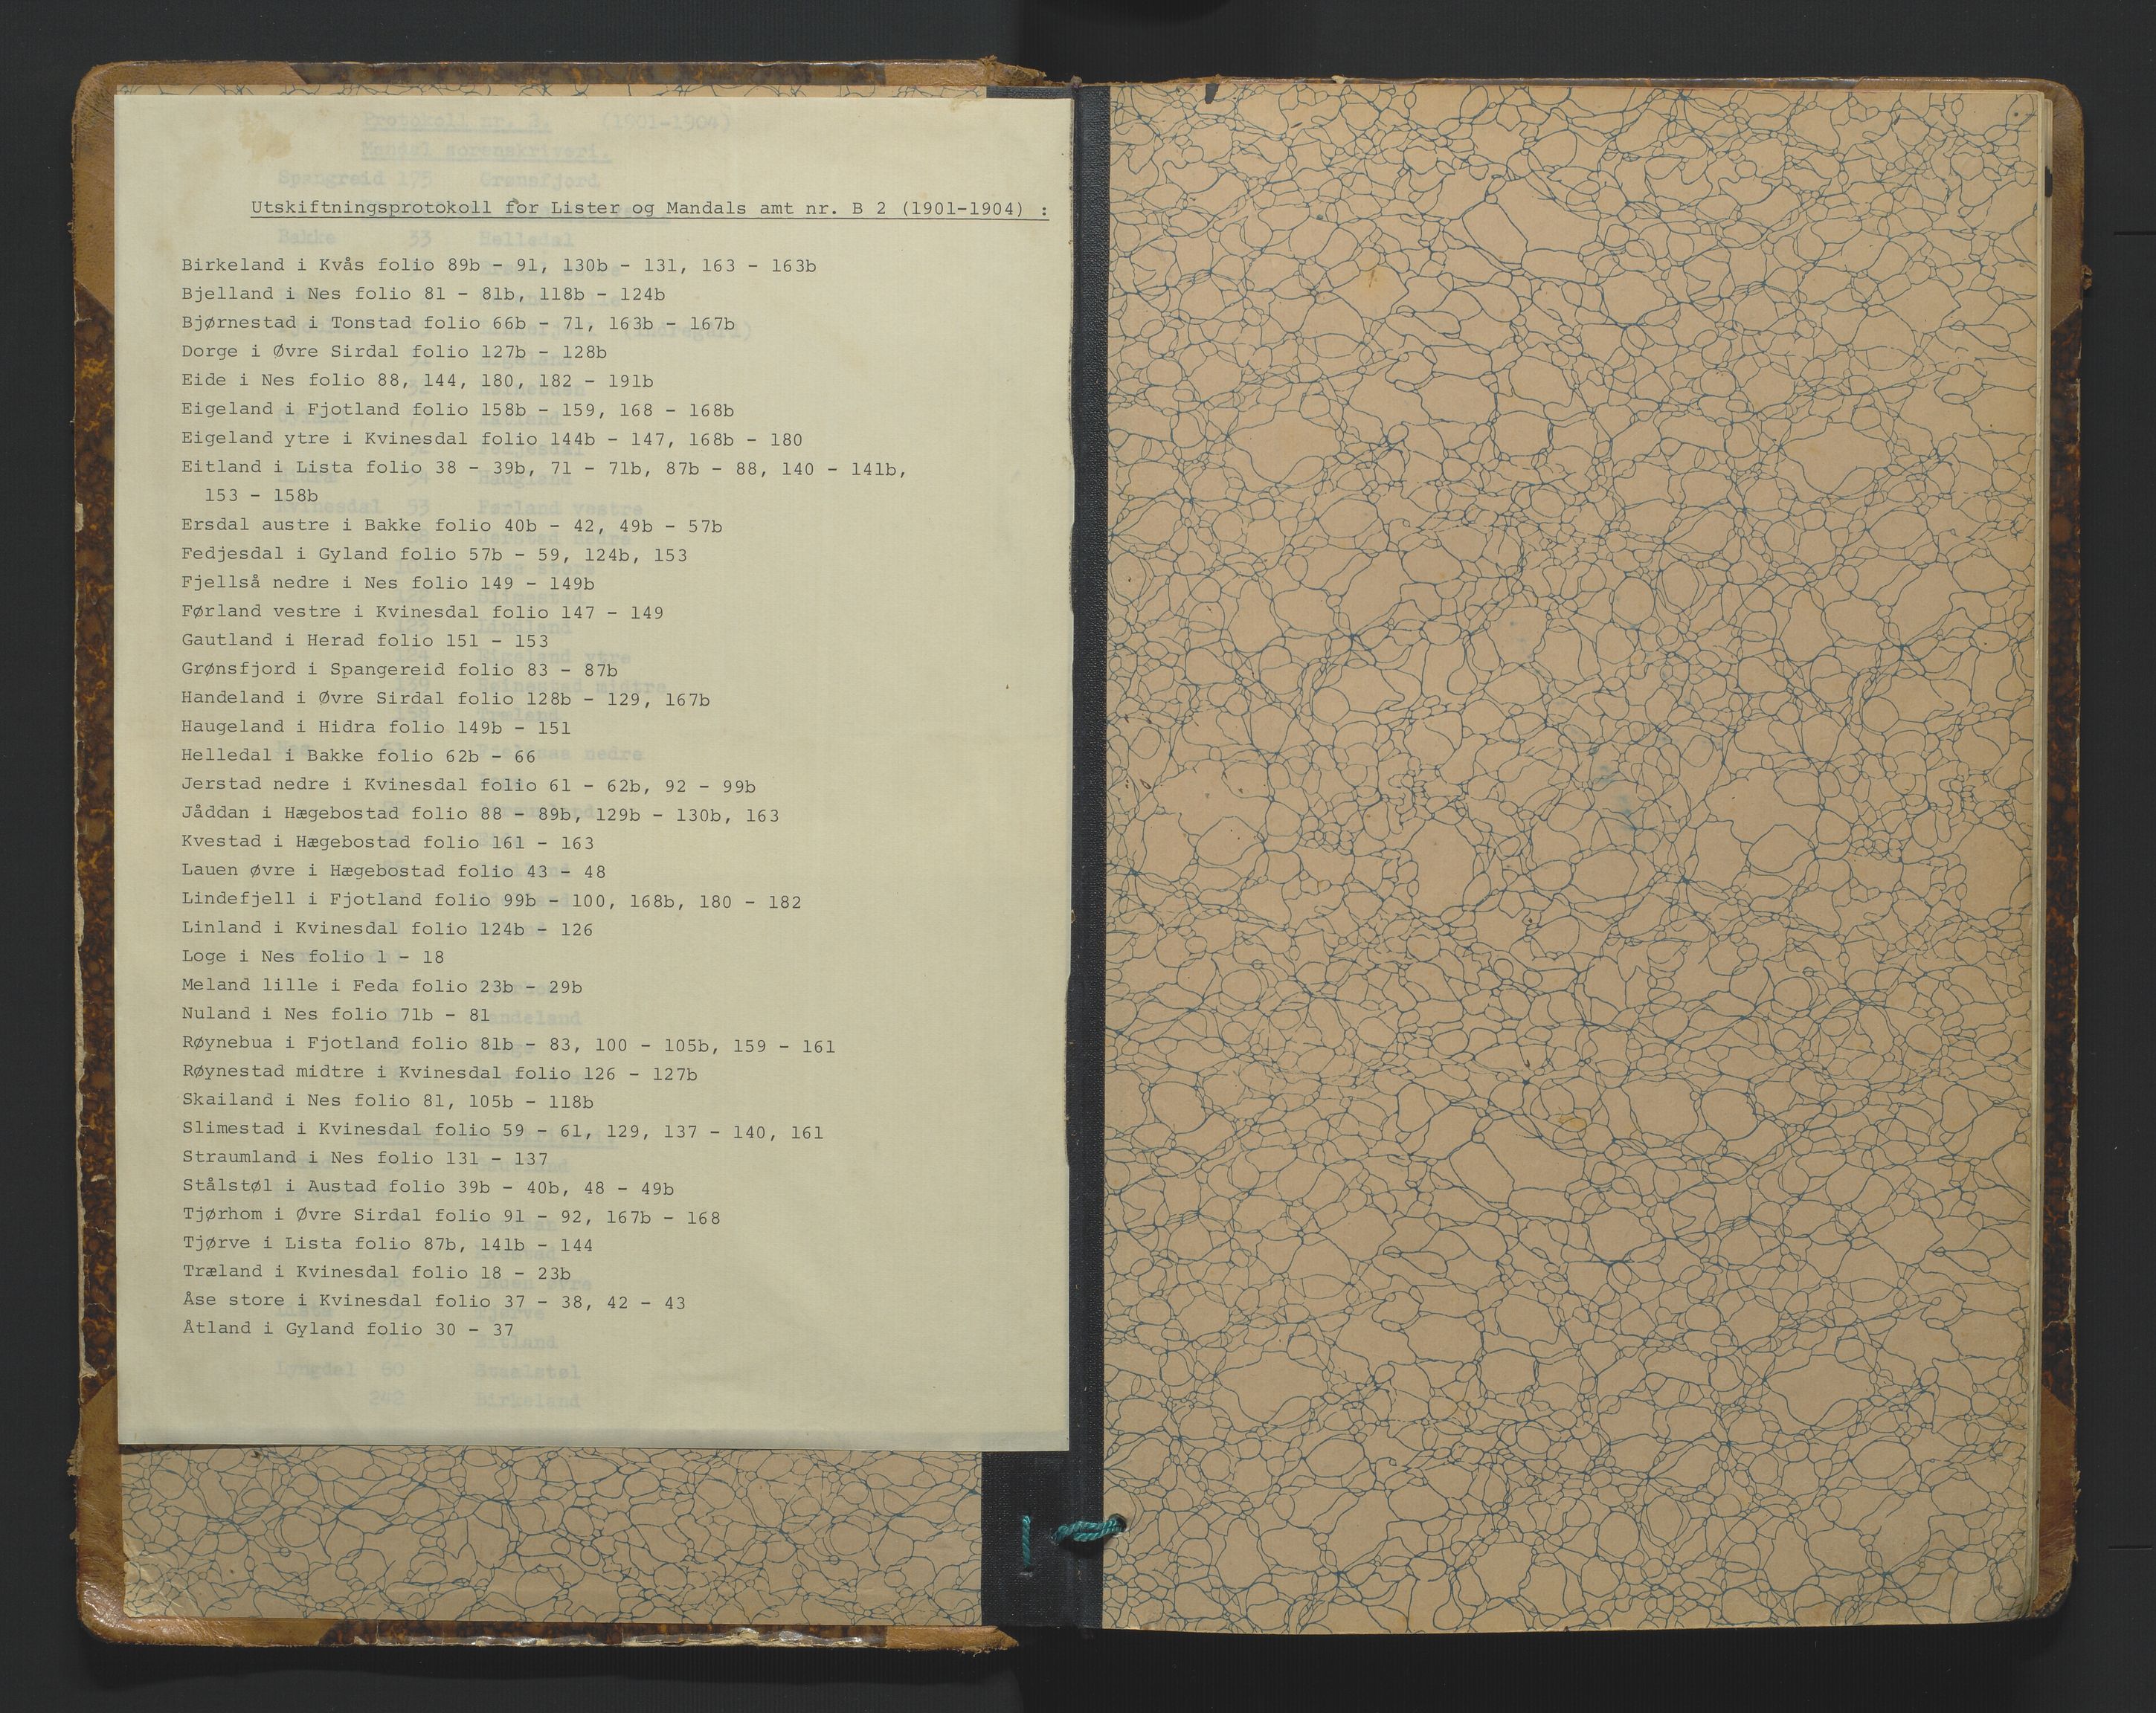 Utskiftningsprotokoll for Lister og Mandals amt nr. B 2 (1901-1904) :
Birkeland i Kvås folio 89b - 91, 130b - 131, 163 - 163b
Bjelland i Nes folio 81 - 81b, 118b - 124b
Bjørnestad i Tonstad folio 66b - 71, 163b - 167b
Dorge i Øvre Sirdal folio 127b - 128b
Eide i Nes folio 88, 144, 180, 182 - 191b
Eigeland i Fjotland folio 158b - 159, 168 - 168b
Eigeland ytre i Kvinesdal folio 144b - 147, 168b - 180
Eitland i Lista folio 38 - 39b, 71 - 71b, 87b - 88, 140 - 141b,
153 - 158b
Ersdal austre i Bakke folio 40b - 42, 49b - 57b
Fedjesdal i Gyland folio 57b - 59, 124b, 153
Fjellså nedre i Nes folio 149 - 149b
Førland vestre i Kvinesdal folio 147 - 149
Gautland i Herad folio 151 - 153
Grønsfjord i Spangereid folio 83 - 87b
Handeland i Øvre Sirdal folio 128b - 129, 167b
Haugeland i Hidra folio 149b - 151
Helledal i Bakke folio 62b - 66
Jerstad nedre i Kvinesdal folio 61 - 62b, 92 - 99b
Jåddan i Hægebostad folio 88 - 89b, 129b - 130b, 163
Kvestad i Hægebostad folio 161 - 163
Lauen øvre i Hægebostad folio 43 - 48
Lindefjell i Fjotland folio 99b - 100, 168b, 180 - 182
Linland i Kvinesdal folio 124b - 126
Loge i Nes folio 1 - 18
Meland lille i Feda folio 23b - 29b
Nuland i Nes folio 71b - 81
Røynebua i Fjotland folio 81b - 83, 100 - 105b, 159 - 161
Røynestad midtre i Kvinesdal folio 126 - 127b
Skailand i Nes folio 81, 105b - 118b
Slimestad i Kvinesdal folio 59 - 61, 129, 137 - 140, 161
Straumland i Nes folio 131 - 137
Stålstøl i Austad folio 39b - 40b, 48 - 49b
Tjørhom i Øvre Sirdal folio 91 - 92, 167b - 168
Tjørve i Lista folio 87b, 141b - 144
Træland i Kvinesdal folio 18 - 23b
Åse store i Kvinesdal folio 37 - 38, 42 - 43
Åtland i Gyland folio 30 - 37